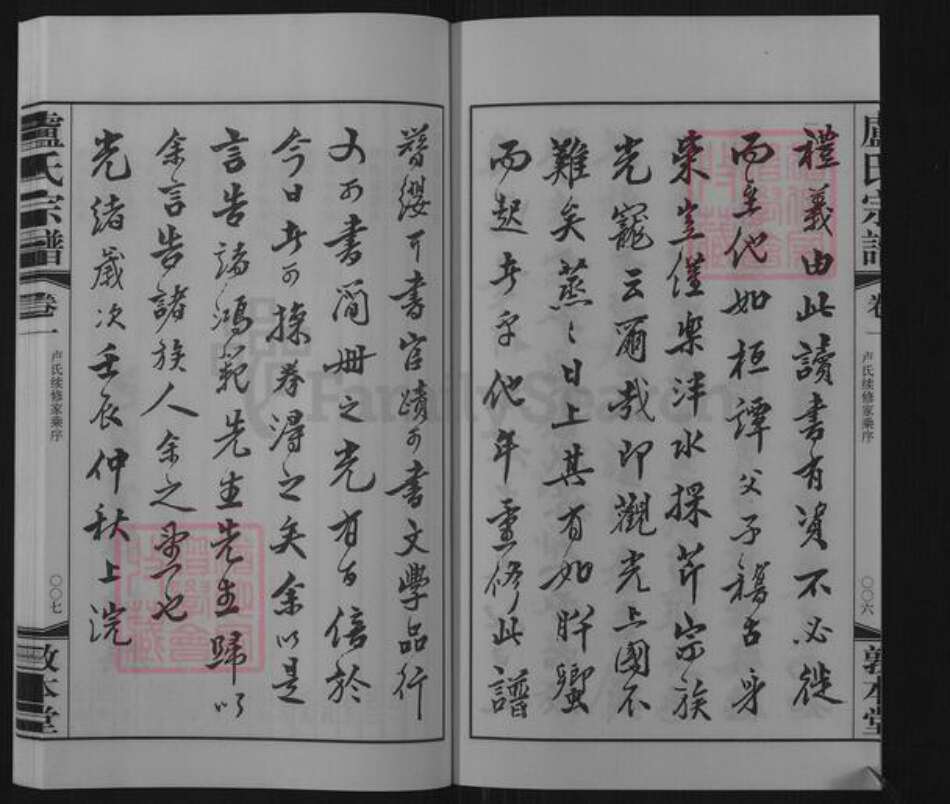 禮義由此讀書有資不必徙
而至他如桓譚父子稽古身
榮豈僅樂泮水採芹宗族
光寵云爾哉即觀光上國不
難矣蒸〻日上其有如肸蠁
而起者乎他年重修此譜
簪纓可書宦蹟可書文學品行
又可書簡冊之光有百倍於
今日者可操券得之矣余以是
言告諸鴻範先生先生歸以
余言告諸族人余之望也
光緒歲次壬辰仲秋上浣
盧氏宗譜
卷一
卢氏续修家乘序
〇〇六
敦本堂
盧氏宗譜
卷一
卢氏续修家乘序
〇〇七
敦本堂
FamilySearch